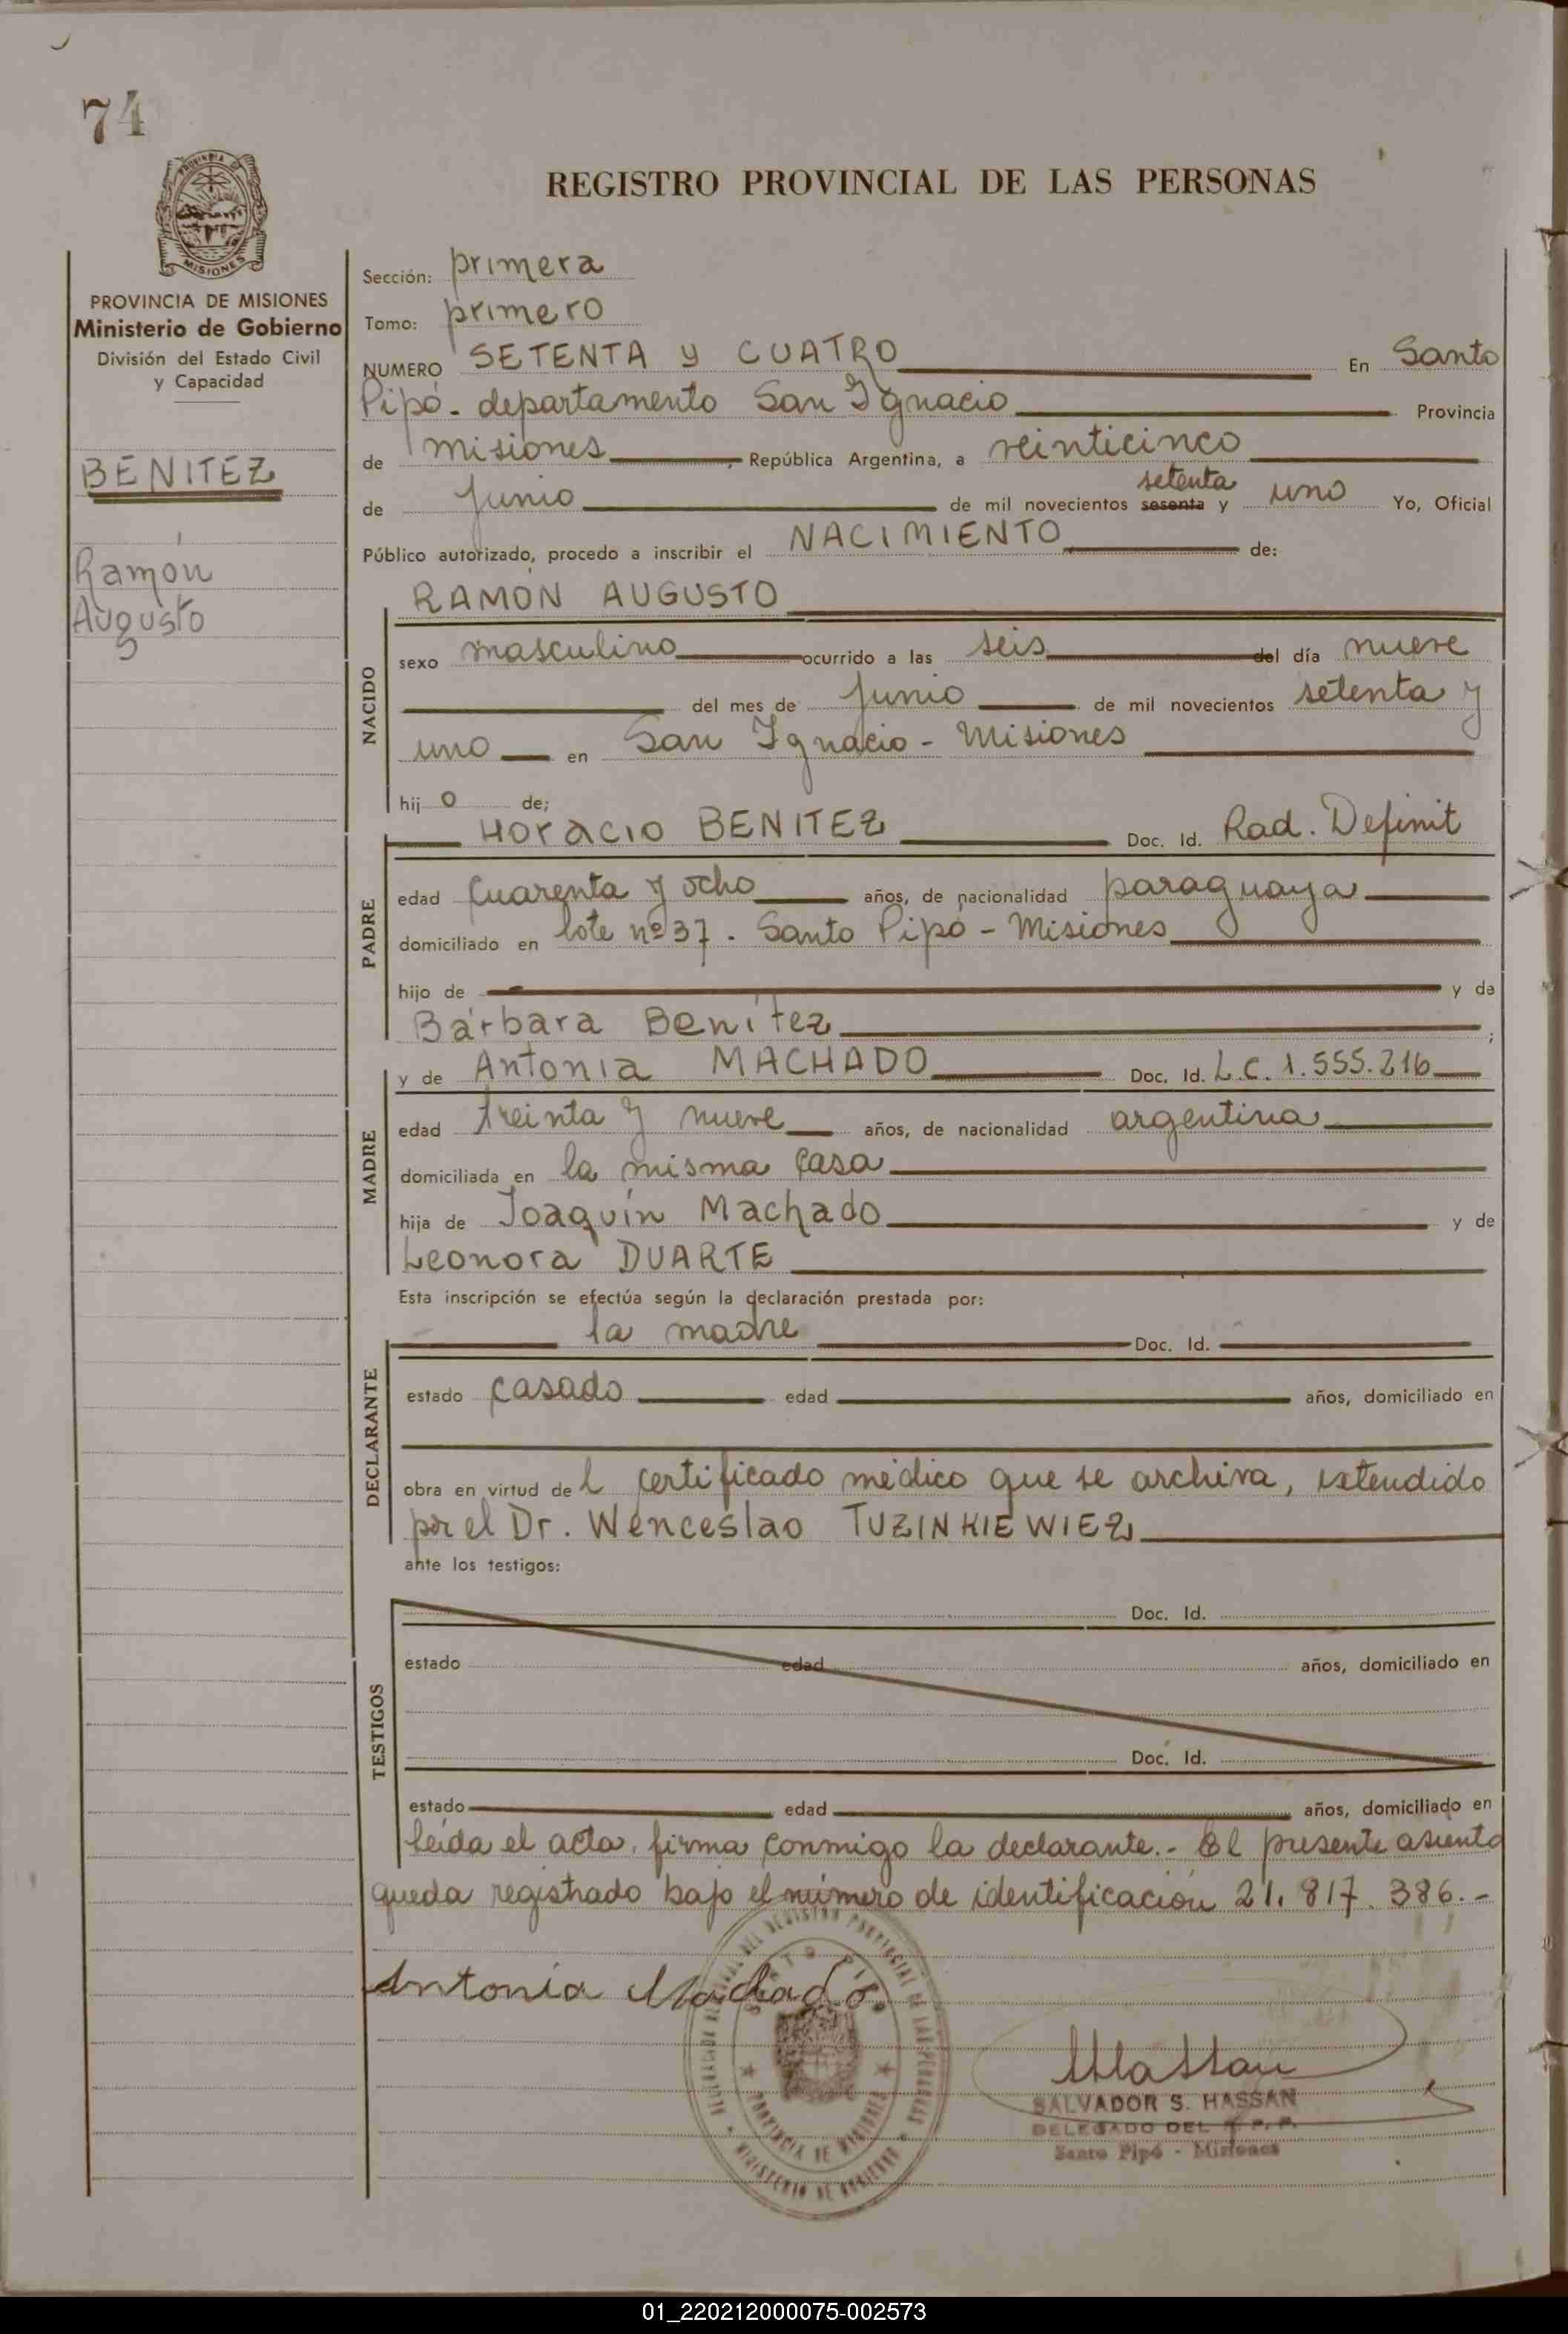 74
REGISTRO PROVINCIAL DE LAS PERSONAS
PROVINCIA DE
MISIONES
PROVINCIA DE MISIONES
Ministerio de Gobierno
División del Estado Civil
y Capacidad
BENITEZ
Ramón
Augusto
Sección: primera
Tomo: primero
NUMERO SETENTA y CUATRO En Santo
Pipó - departamento San Ignacio Provincia
de Misiones, República Argentina, a veinticinco
setenta
de Junio de mil novecientos sesenta y uno Yo, Oficial
Público autorizado, procedo a inscribir el NACIMIENTO de:
NACIDO
RAMÓN AUGUSTO
sexo masculino ocurrido a las seis del día nueve
del mes de Junio de mil novecientos setenta y
uno en San Ignacio - Misiones
hijo de;
PADRE
Horacio BENITEZ Doc. Id. Rad. Definit
edad cuarenta y ocho años, de nacionalidad paraguaya
domiciliado en lote nº 37 - Santo Pipó - Misiones
hijo de y de
Bárbara Benítez ;
MADRE
y de Antonia MACHADO Doc. Id. L.C. 1.555.216
edad treinta y nueve años, de nacionalidad argentina
domiciliada en la misma casa
hija de Joaquín Machado y de
Leonora DUARTE
Esta inscripción se efectúa según la declaración prestada por:
DECLARANTE
la madre Doc. Id.
estado casado edad años, domiciliado en
obra en virtud del certificado médico que se archiva, extendido
por el Dr. Wenceslao TUZINKIEWIEZ
ante los testigos:
TESTIGOS
Doc. Id.
estado edad años, domiciliado en
Doc. Id.
estado edad años, domiciliado en
leída el acta, firma conmigo la declarante.- El presente asiento
queda registrado bajo el número de identificación 21.817.386.-
Antonia Machado
REGISTRO PROVINCIAL DE LAS PERSONAS
SANTO PIPO
PROVINCIA DE MISIONES
MINISTERIO DE GOBIERNO
SALVADOR S. HASSAN
DELEGADO DEL R. P. P.
Santo Pipó - Misiones
01_220212000075-002573